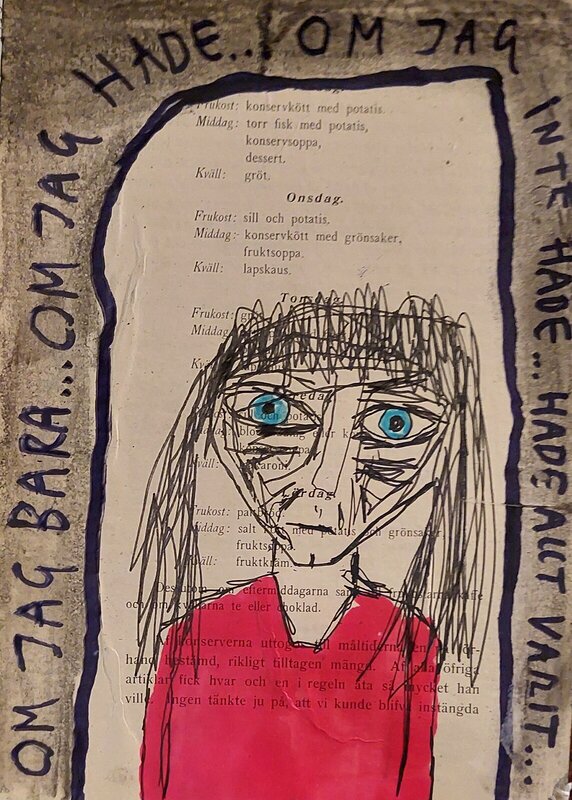 OM JAG BARA... OM JAG
HADE... OM JAG
INTE HADE... HADE ALLT VARIT...
Frukost: konservkött med potatis.
Middag: torr fisk med potatis,
konservsoppa,
dessert.
Kväll: gröt.
Onsdag.
Frukost: sill och potatis.
Middag: konservkött med grönsaker,
fruktsoppa.
Kväll: lapskaus.
Frukost:
Middag
Kväll:
Frukost:
Middag: salt kött med potatis och grönsaker,
fruktsoppa.
Kväll: fruktkräm.
Dessutom eftermiddagarna kaffe
och om kvällarna te eller choklad.
Af konserverna uttogs till måltiderna en på för-
hand bestämd, rikligt tilltagen mängd. Af alla öfriga
artiklar fick hvar och en i regeln äta så mycket han
ville. Ingen tänkte ju på, att vi kunde blifva instängda